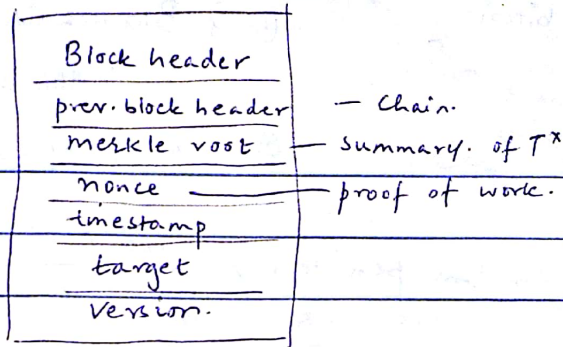 Block header
prev. block header — Chain.
merkle root — summary. of Tx
nonce — proof of work.
timestamp
target
Version.